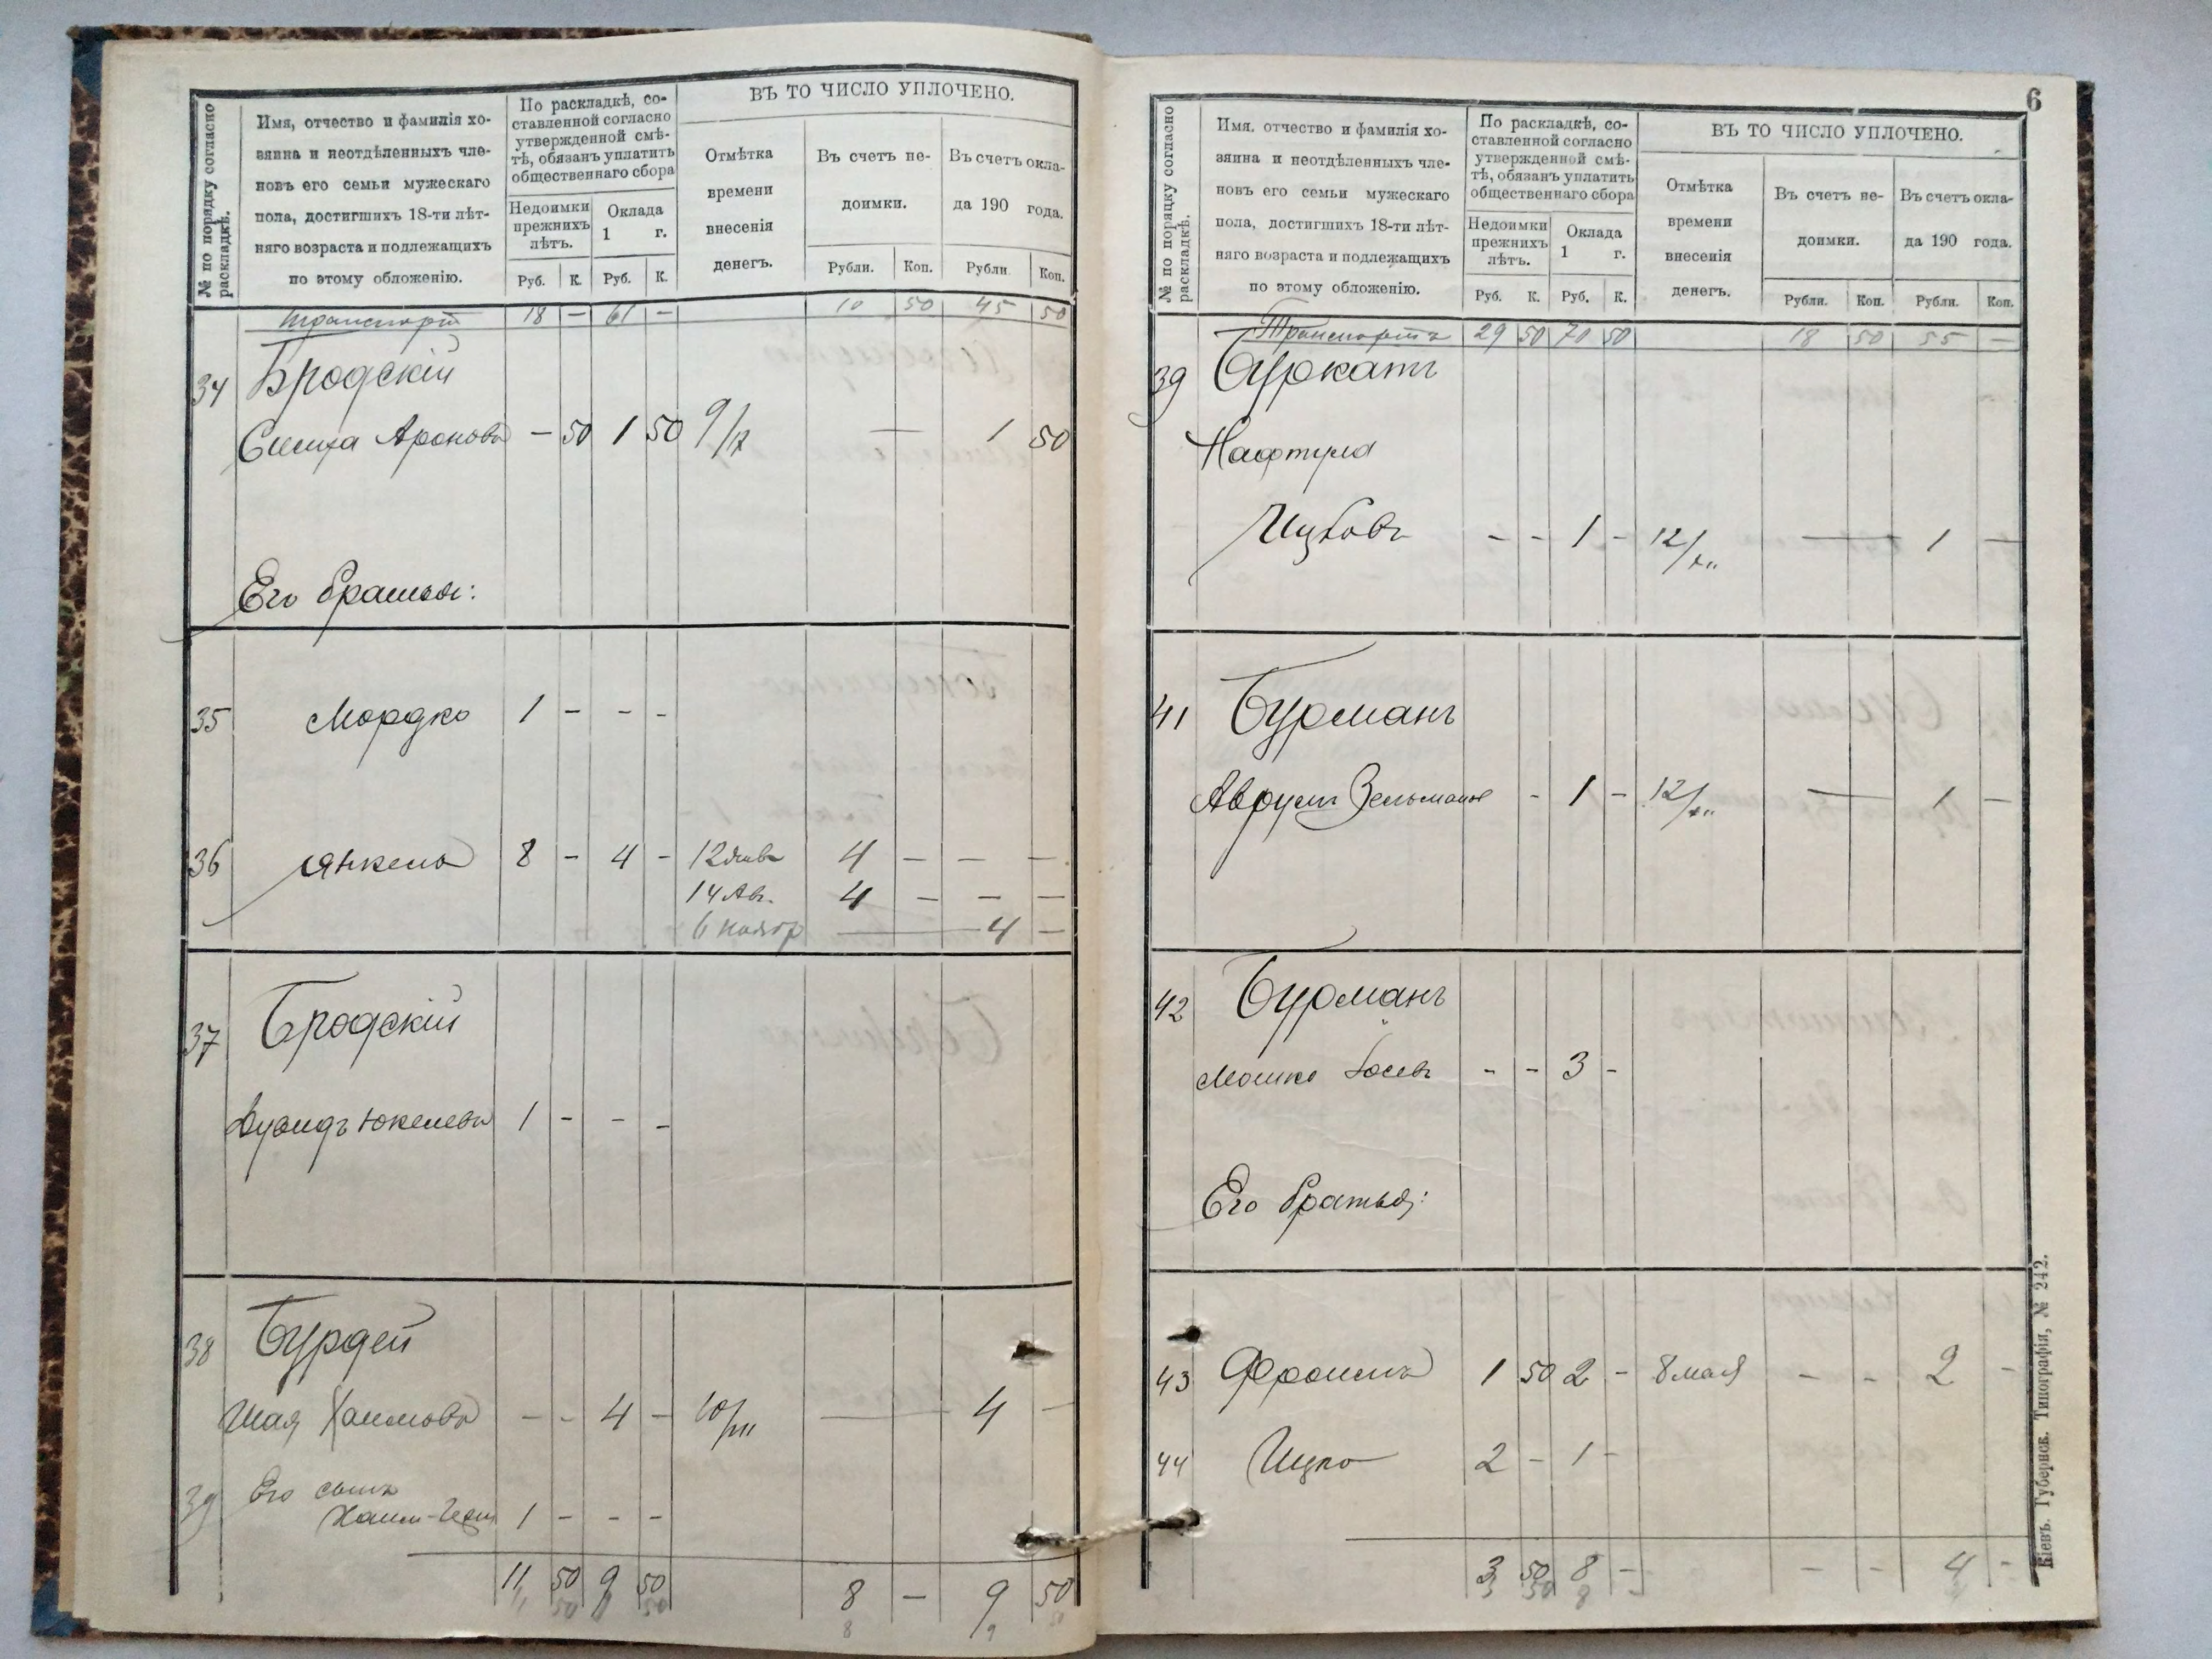 № по порядку согласно раскладкѣ.
Имя, отчество и фамилія хо-
зяина и неотдѣленныхъ чле-
новъ его семьи мужескаго
пола, достигшихъ 18-ти лѣт-
няго возраста и подлежащихъ
по этому обложенію.
По раскладкѣ, со-
ставленной согласно
утвержденной смѣ-
тѣ, обязанъ уплатить
общественнаго сбора
Недоимки прежнихъ лѣтъ.
Оклада 1 г.
Руб. К. Руб. К.
ВЪ ТО ЧИСЛО УПЛОЧЕНО.
Отмѣтка
времени
внесенія
денегъ.
Въ счетъ не-
доимки.
Въ счетъ окла-
да 190 года.
Рубли. Коп. Рубли Коп.
транспортъ 18 — 61 — 10 50 45 50
34 Бродскій
Симха Ароновъ — 50 1 50 9/ — 1 50
Его братья:
35 Мордко 1 - - -
36 Янкель 8 - 4 - 12 янв 4 — — —
14 Ав. 4 — — —
6 ноябр — 4 —
37 Бродскій
Дувидъ Юкелевъ 1 - - -
38 Бурдей
Шая Хаимовъ - - 4 - 10/ — 4 —
39 Его сынъ
Хаим- 1 - - -
11 50 9 50 8 — 9 50
11 50 9 50 8 9 50
6
№ по порядку согласно раскладкѣ.
Имя, отчество и фамилія хо-
зяина и неотдѣленныхъ чле-
новъ его семьи мужескаго
пола, достигшихъ 18-ти лѣт-
няго возраста и подлежащихъ
по этому обложенію.
По раскладкѣ, со-
ставленной согласно
утвержденной смѣ-
тѣ, обязанъ уплатить
общественнаго сбора
Недоимки прежнихъ лѣтъ.
Оклада 1 г.
Руб. К. Руб. К.
ВЪ ТО ЧИСЛО УПЛОЧЕНО.
Отмѣтка
времени
внесенія
денегъ.
Въ счетъ не-
доимки.
Въ счетъ окла-
да 190 года.
Рубли. Коп. Рубли. Коп.
Транспортъ 29 50 70 50 18 50 55 —
39 Буркатъ
Нафтула
Ицковъ - - 1 - 12/ — 1 —
41 Бурманъ
Аврумъ Зельмановъ - 1 - 12/ — 1 —
42 Бурманъ
Мошко - - 3 -
Его братья:
43 Фроимъ 1 50 2 - 8 мая - - 2 -
44 Ицко 2 - 1 -
3 50 8 - - - 4 -
3 50 8 -
Кіевъ. Губернск. Типографія, № 242.